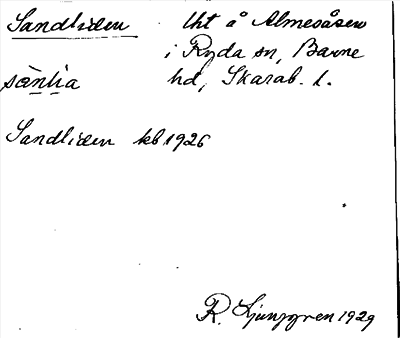 Sandliden lht å Almesåsen
i Ryda sn, Barne
sànlia hd, Skarab. l.
Sandliden kb 1926
R. Ljunggren 1929